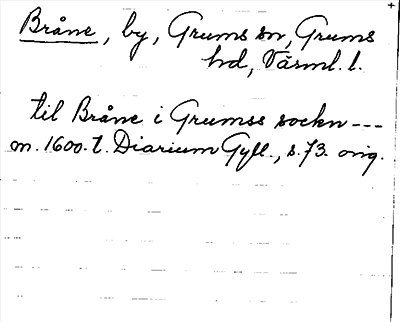 Bråne, by, Grums sn, Grums
hd, Värml. l.
til Bråne i Grumss sockn ---
m. 1600-t. Diarium Gyll., s. 73. orig.